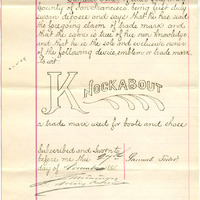 County of San Francisco being first duly
sworn deposes and says that he has read
the foregoing claim of trade mark and
that the same is true of his own knowledge
and that he is the sole and exclusive owner
of the following device, emblem or trade mark
to wit
KNOCKABOUT
a trade mark used for boots and shoes
Subscribed and Sworn to
before me this
day of November